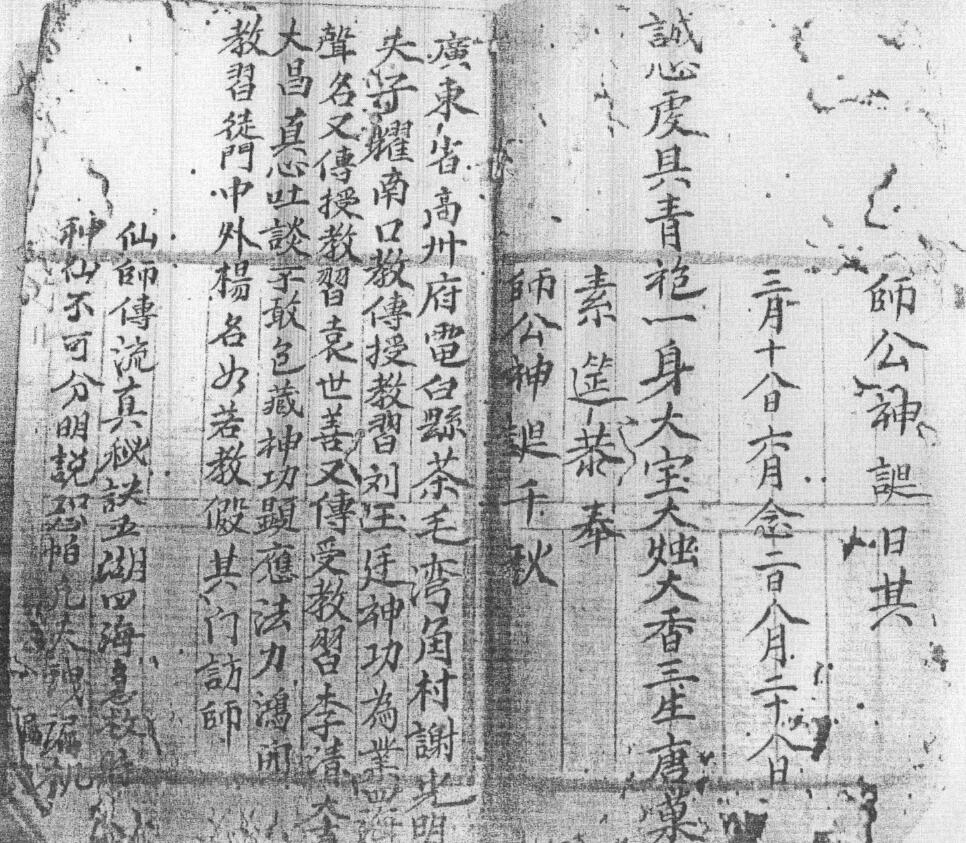 師公神誕日其
三月十八日六月念二日八月二十八日
誠心虔具青袍一身大宝大烛大香三生唐菓
素筵恭奉
師公神誕千秋
廣東省高州府電白縣茶毛湾角村謝光明
夫子耀南口教傳授教習刘玉廷神功為業四海
聲名又傳授教習袁世善又傳受教習李清
大昌真心吐談不敢包藏神功顯應法力鴻開
教習徒門中外楊名如若教假其门訪師
仙師傳流真秘訣五湖四海急救時
神仙不可分明説恐怕凡夫洩